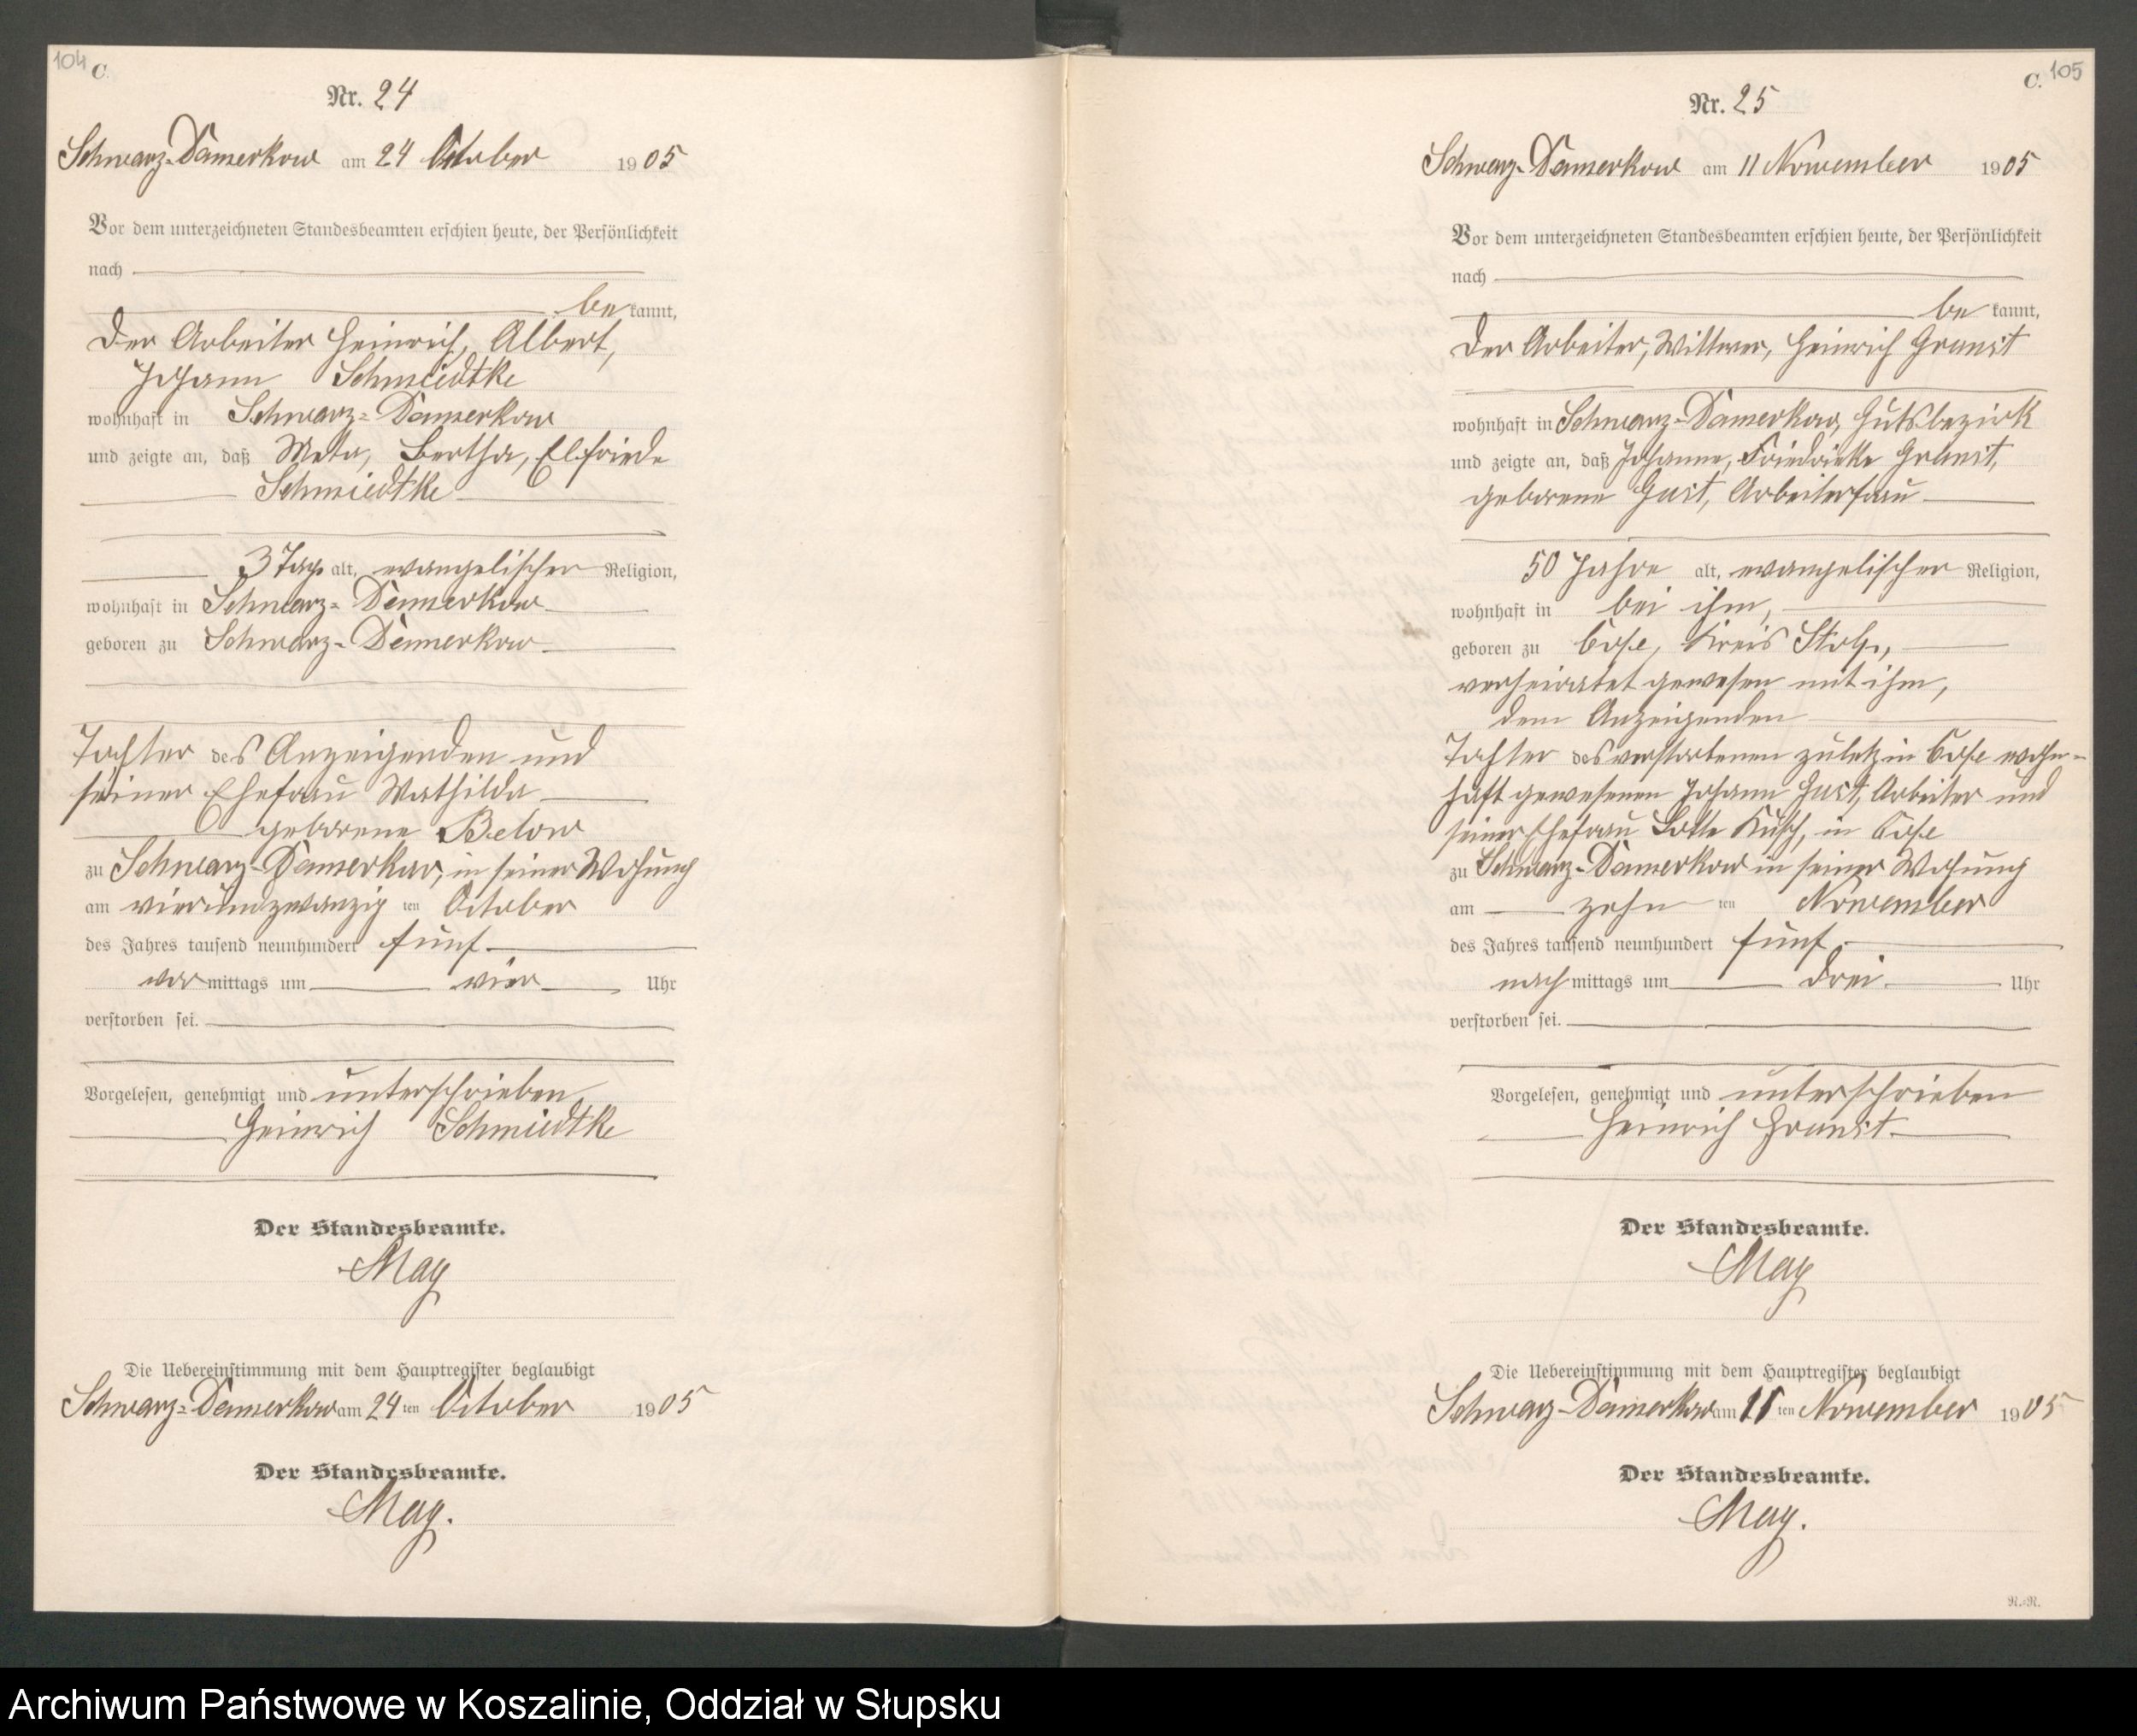 104 C.
Nr. 24
Schwarz-Damerkow am 24 October 1905
Vor dem unterzeichneten Standesbeamten erschien heute, der Persönlichkeit
nach
be kannt,
der Arbeiter Heinrich, Albert,
Johann Schmiedtke
wohnhaft in Schwarz-Damerkow
und zeigte an, daß Meta, Bertha, Elfriede
Schmiedtke
3 Tage alt, evangelischer Religion,
wohnhaft in Schwarz-Damerkow
geboren zu Schwarz-Damerkow
Tochter des Anzeigenden und
seiner Ehefrau Mathilda
geborene Below
zu Schwarz-Damerkow, in seiner Wohung
am vierundzwanzig ten October
des Jahres tausend neunhundert fünf
vor mittags um vier Uhr
verstorben sei.
Vorgelesen, genehmigt und unterschrieben
Heinrich Schmiedtke
Der Standesbeamte.
May
Die Uebereinstimmung mit dem Hauptregister beglaubigt
Schwarz-Damerkow am 24 ten October 1905
Der Standesbeamte.
May.
C. 105
Nr. 25
Schwarz-Damerkow am 11 November 1905
Vor dem unterzeichneten Standesbeamten erschien heute, der Persönlichkeit
nach
be kannt,
der Arbeiter, Wittwer, Heinrich Granst
wohnhaft in Schwarz-Damerkow, Gutsbezirk
und zeigte an, daß Johanne, Friedricke Granst,
geborene Gust, Arbeiterfrau
50 Jahre alt, evangelischer Religion,
wohnhaft in bei ihm,
geboren zu Kreis Stolp,
verheiratet gewesen mit ihm,
dem Anzeigenden
Tochter des verstorbenen zuletz in wohn-
haft gewesenen Johann Gust, Arbeiter und
seiner Ehefrau Lotte in
zu Schwarz-Damerkow in seiner Wohung
am zehn ten November
des Jahres tausend neunhundert fünf
nach mittags um drei Uhr
verstorben sei.
Vorgelesen, genehmigt und unterschrieben
Heinrich Granst
Der Standesbeamte.
May
Die Uebereinstimmung mit dem Hauptregister beglaubigt
Schwarz-Damerkow am 11 ten November 1905
Der Standesbeamte.
May.
N.-N.
Archiwum Państwowe w Koszalinie, Oddział w Słupsku